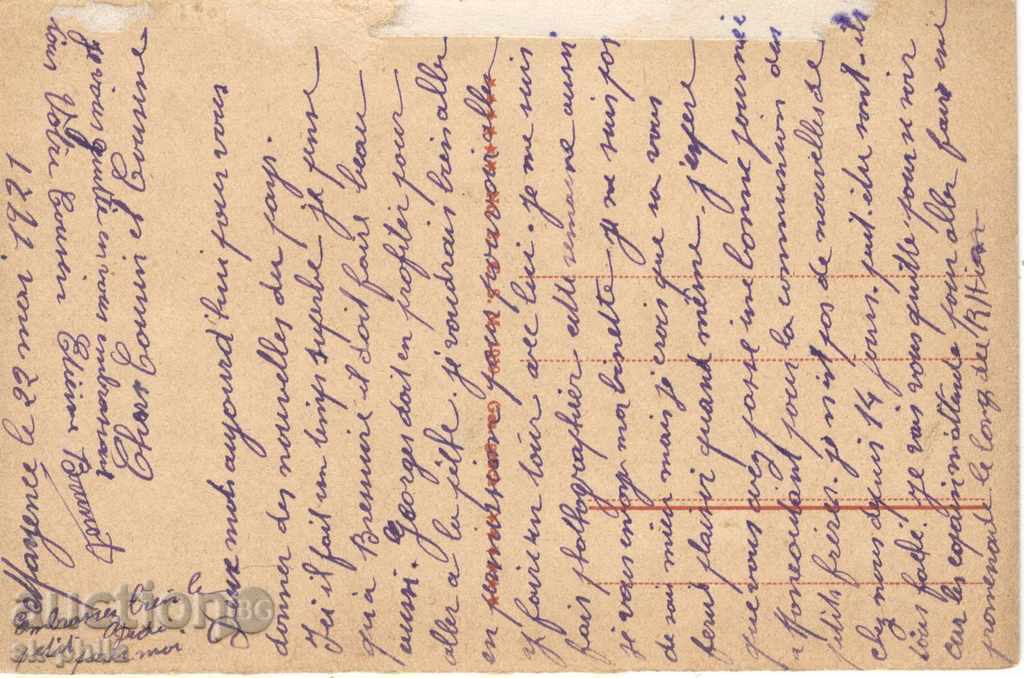 Mayence le 22 mai 1921
Chers Cousin et Cousine
Deux mots aujourd'hui pour vous
donner des nouvelles du pays.
Ici il fait un temps superbe je pense
qu'a Bressuire il doit faire beau
aussi. Georges doit en profiter pour
aller a la pêche. je voudrais bien aller
en permissions pour pouvoir aller
y faire un tour avec lui. je me suis
fais pothographier cette semaine aussi
je vous envoye ma binette je ne suis pas
de mieux mais je crois que sa vous
feras plaisir quand même. j'espère
que vous avez passé une bonne journée
a Moncoutant pour la communion des
petits frères. je n'est pas de nouvelles de
chez nous depuis 14 jours. peut-être sont-ils
tous fadé. je vais vous quitte pour se soir
car les copains m'attende pour aller faire une
promenade le long du Rhin
je vais quitte en vous embrassant
tous Votre Cousin
Embrassez bien le
petit André
pour moi
auction BG